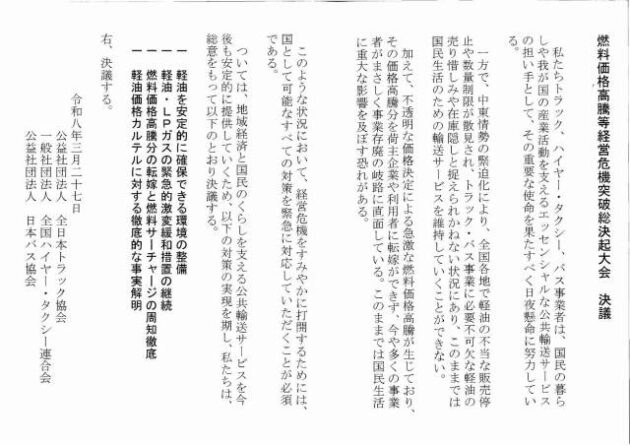 燃料価格高騰等経営危機突破総決起大会　決議
私たちトラック、ハイヤー・タクシー、バス事業者は、国民の暮ら
しや我が国の産業活動を支えるエッセンシャルな公共輸送サービス
の担い手として、その重要な使命を果たすべく日夜懸命に努力してい
る。
一方で、中東情勢の緊迫化により、全国各地で軽油の不当な販売停
止や数量制限が散見され、トラック・バス事業に必要不可欠な軽油の
売り惜しみや在庫隠しと捉えられかねない状況にあり、このままでは
国民生活のための輸送サービスを維持していくことができない。
加えて、不透明な価格決定による急激な燃料価格高騰が生じており、
その価格高騰分を荷主企業や利用者に転嫁ができず、今や多くの事業
者がまさしく事業存廃の岐路に直面している。このままでは国民生活
に重大な影響を及ぼす恐れがある。
このような状況において、経営危機をすみやかに打開するためには、
国として可能なすべての対策を緊急に対応していただくことが必須
である。
ついては、地域経済と国民のくらしを支える公共輸送サービスを今
後も安定的に提供していくため、以下の対策の実現を期し、私たちは、
総意をもって以下のとおり決議する。
一　軽油を安定的に確保できる環境の整備
一　軽油・ＬＰガスの緊急的激変緩和措置の継続
一　燃料価格高騰分の転嫁と燃料サーチャージの周知徹底
一　軽油価格カルテルに対する徹底的な事実解明
右、決議する。
令和八年三月二十七日
公益社団法人　全日本トラック協会
一般社団法人　全国ハイヤー・タクシー連合会
公益社団法人　日本バス協会